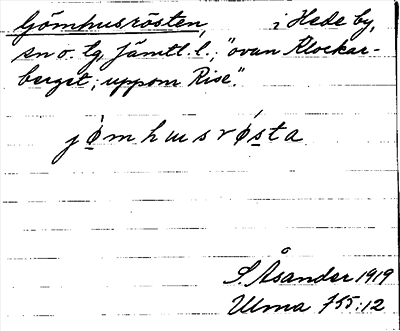 Gömhusrösten, i Hede by,
sn o. tg Jämtl. l.; "ovan Klockar-
berget; uppom Rise".
jø̀mhusrø̀sta
S. Åsander 1919
Ulma 755:12